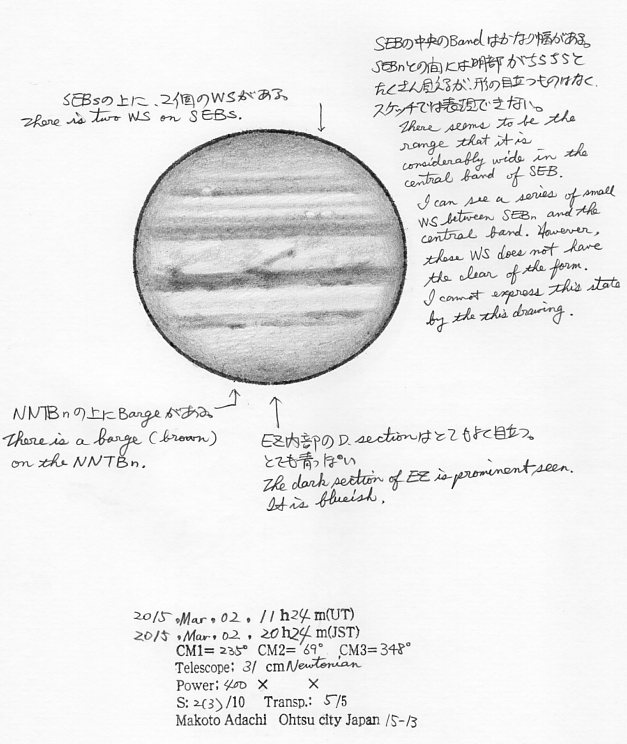 SEBの中央のBandはかなり幅がある。
SEBnとの間には明部がちらちらと
たくさん見えるが、形の目立つものはなく、
スケッチでは表現できない。
There seems to be the
range that it is
considerably wide in the
central band of SEB.
I can see a series of small
WS between SEBn and the
central band. However,
these WS does not have
the clear of the form.
I cannot express this state
by the this drawing.
SEBsの上に、2個のWSがある
There is two WS on SEBs.
NNTBnの上にBargeがある。
There is a barge (brown)
on the NNTBn.
EZ内部のD. sectionはとてもよく目立つ。
とても青っぽい
The dark section of EZ is prominent seen.
It is blueish.
2015, Mar, 02, 11h24m(UT)
2015, Mar, 02, 20h24m(JST)
CM1= 235° CM2= 69° CM3= 348°
Telescope; 31 cm Newtonian
Power; 400 × ×
S: 2(3)/10 Transp.: 5/5
Makoto Adachi Ohtsu city Japan 15-13